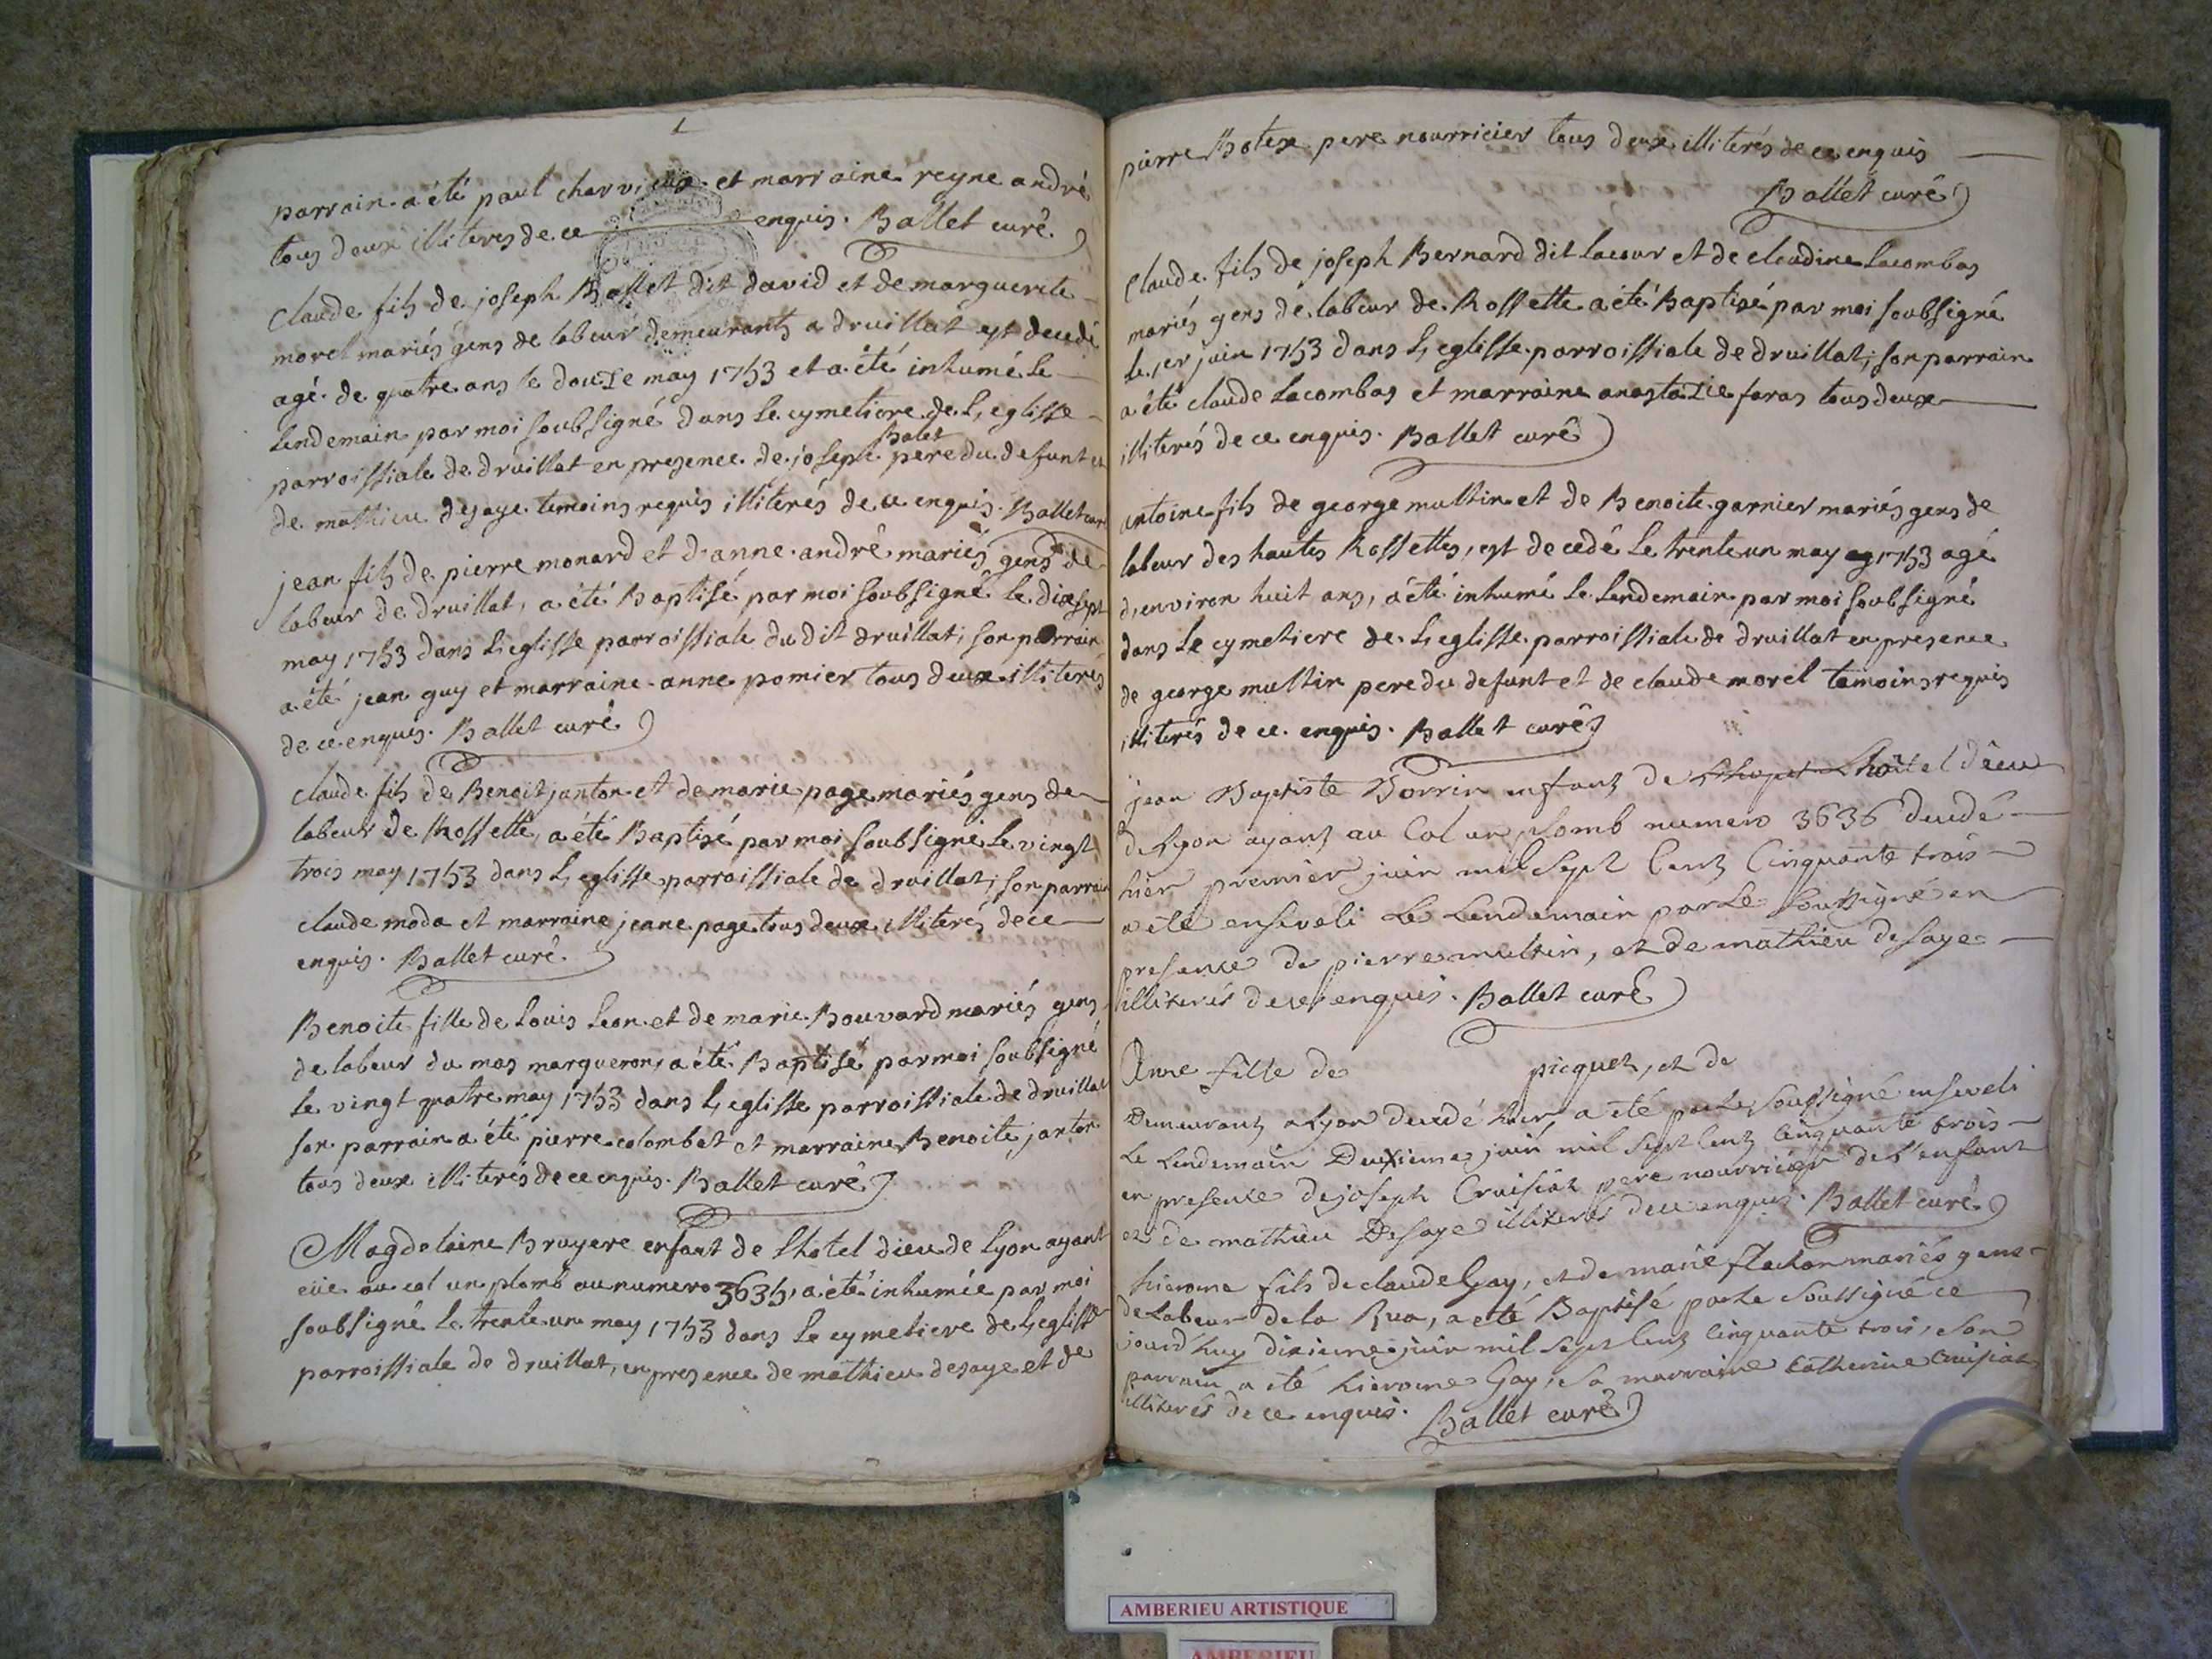 parrain a été paul charvieux et marraine reyne andré
tous deux illiteres de ce enquis. Ballet curé
Claude fils de joseph Ballet dit david et de marguerite
morel mariés gens de labeur demeurants a druillat est decedé
agé de quatre ans le douze may 1753 et a été inhumé le
lendemain par moi soubsigné dans le cymetiere de L'eglisse
parroissiale de druillat en presence de joseph Balet pere du defunt et
de mathieu desaye temoins requis illiterés de ce enquis. Ballet curé
jean fils de pierre monard et d'anne andré mariés gens de
labeur de druillat, a été Baptisé par moi soubsigné le dixsept
may 1753 dans L'eglisse parroissiale du dit druillat; son parrain
a été jean guy et marraine anne pomier tous deux illiterés
de ce enquis. Ballet curé
claude fils de Benoit janton et de marie page mariés gens de
labeur de Rossette, a été Baptisé par moi soubsigné le vingt
trois may 1753 dans L'eglisse parroissiale de druillat; son parrain
claude moda et marraine jeane page tous deux illiterés de ce
enquis. Ballet curé.
Benoite fille de Louis Leon et de marie Bouvard mariés gens
de labeur du mas margueron, a été Baptisé par moi soubsigné
le vingt quatre may 1753 dans L'eglisse parroissiale de druillat
son parrain a été pierre colombet et marraine Benoite janton
tous deux illiterés de ce enquis. Ballet curé
Magdelaine Bruyere enfant de Lhotel dieu de Lyon ayant
eüe au col un plomb au numero 3635, a été inhumée par moi
soubsigné le trente un may 1753 dans le cymetiere de L'eglisse
parroissiale de druillat, en presence de mathieu desaye et de
pierre Botex pere nourricier tous deux illiterés de ce enquis
Ballet curé
Claude fils de joseph Bernard dit Lacour et de claudine Lacombas
mariés gens de labeur de Rossette a été Baptisé par moi soubsigné
le 1er juin 1753 dans L'eglisse parroissiale de druillat; son parrain
a été claude Lacombas et marraine anastazie faras tous deux
illiterés de ce enquis. Ballet curé
antoine fils de george multin et de Benoite garnier mariés gens de
labeur des hautes Rossettes, est decedé le trente un may 1753 agé
d'environ huit ans, a été inhumé le lendemain par moi soubsigné
dans le cymetiere de L'eglisse parroissiale de druillat en presence
de george multin pere du defunt et de claude morel temoins requis
illiterés de ce enquis. Ballet curé
jean Baptiste Borrin enfant de Lhotel dieu
de Lyon ayant au Col un plomb numero 3636 decedé
hier premier juin mil sept Cent Cinquante trois
a été enseveli Le Lendemain par Le Soussigné en
presence de pierre multin, et de mathieu desaye
illiterés de ce enquis. Ballet curé
Anne fille de picquet, et de
Demeurant a Lyon decedé hier, a été par Le soussigné enseveli
Le Lendemain Deuxieme juin mil sept Cent Cinquante trois
en presence de joseph Cruisiat pere nourricier de l'enfant
et de mathieu Desaye illiterés de ce enquis. Ballet curé
hierome fils de claude Gay, et de marie flachon mariés gens
de Labeur de la Rua, a été Baptisé par Le Soussigné ce
jourd'huy dixieme juin mil sept Cent Cinquante trois, son
parrain a été hierome Gay, sa marraine Catherine Cruisiat
illiterés de ce enquis. Ballet curé
AMBERIEU ARTISTIQUE
AMBERIEU